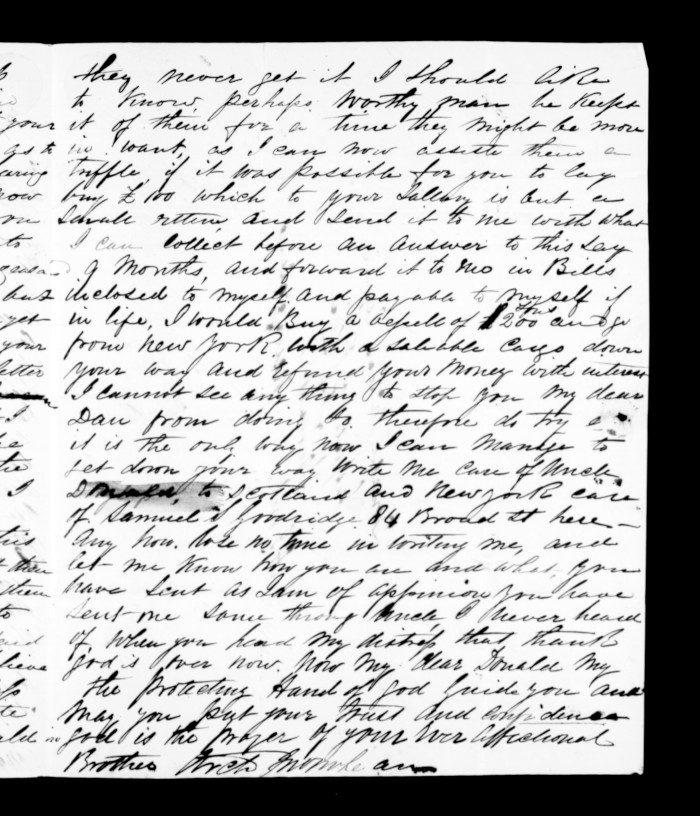 they never get it I should like
to know, perhaps worthy man he keeps
your it of them for a time they might be more
as to in want, as I can now assiste them a
triffle, if it was possible for you to lay
now buy £100 which to your Sallary is but a
on small retturn, and send it to me with what
to I can collect before an answer to this say
9 Months, and forward it to me in Bills
but inclosed to myself and payable to myself if
yet in life, I would Buy a vessell of 200 tons and go
your from new york with a saleable cargo down
letter your way and refund your money with interest
I cannot see any thing to stop you my dear
I Dan from doing so, therefore do try
be it is the only way now I can manage to
the get down your way write me care of Uncle
I Donald, to Scotland and New york care
of Samuel Goodridge 84 Broad St here
any how. lose no time in writing me, and
than let me know how you are and what you
them have sent as I am of oppinion you have
to sent me some through Uncle I never heard
of, when you heard my distress that, thank
lieve god is over now. Now my dear Donald My
the Protecting Hand of god Guide you and
may you put your trust and confidence
god is the prayer of your ever affectionat
Brother Archd